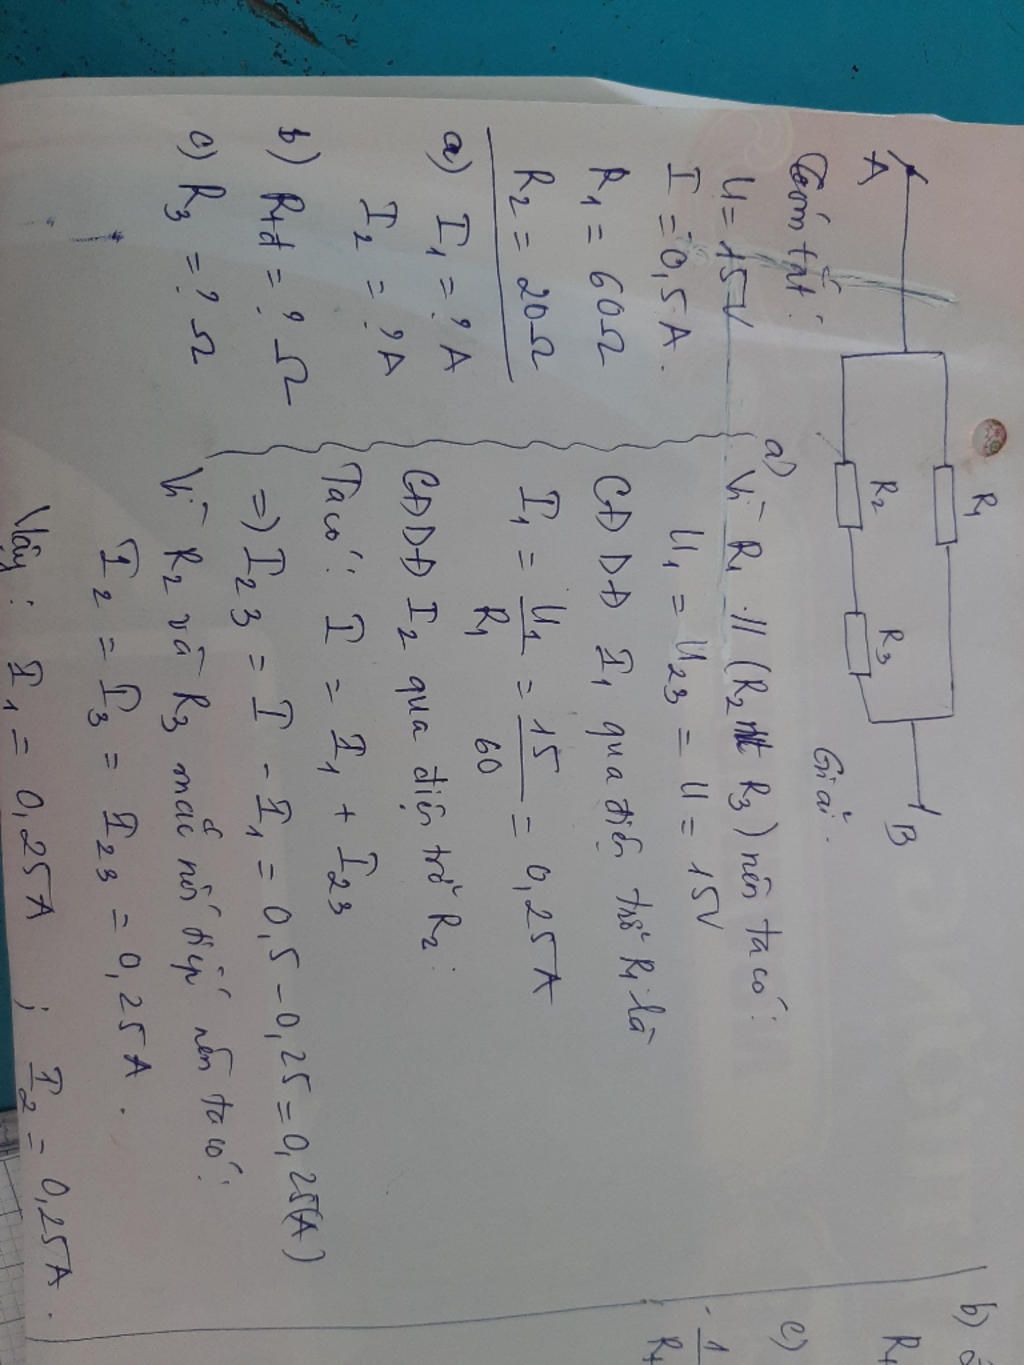 A
R1
R2
R3
B
Tóm tắt:
U = 15V
I = 0,5A.
R1 = 60Ω
R2 = 20Ω
a) I1 = ? A
I2 = ? A
b) Rtđ = ? Ω
c) R3 = ? Ω
Giải.
a) Vì R1 // (R2 nt R3) nên ta có:
U1 = U23 = U = 15V
CĐDĐ I1 qua điện trở R1 là
I1 = U1/R1 = 15/60 = 0,25A
CĐDĐ I2 qua điện trở R2:
Ta có: I = I1 + I23
=> I23 = I - I1 = 0,5 - 0,25 = 0,25(A)
Vì R2 và R3 mắc nối tiếp nên ta có:
I2 = I3 = I23 = 0,25A.
Vậy: I1 = 0,25A ; I2 = 0,25A.
b)
c)